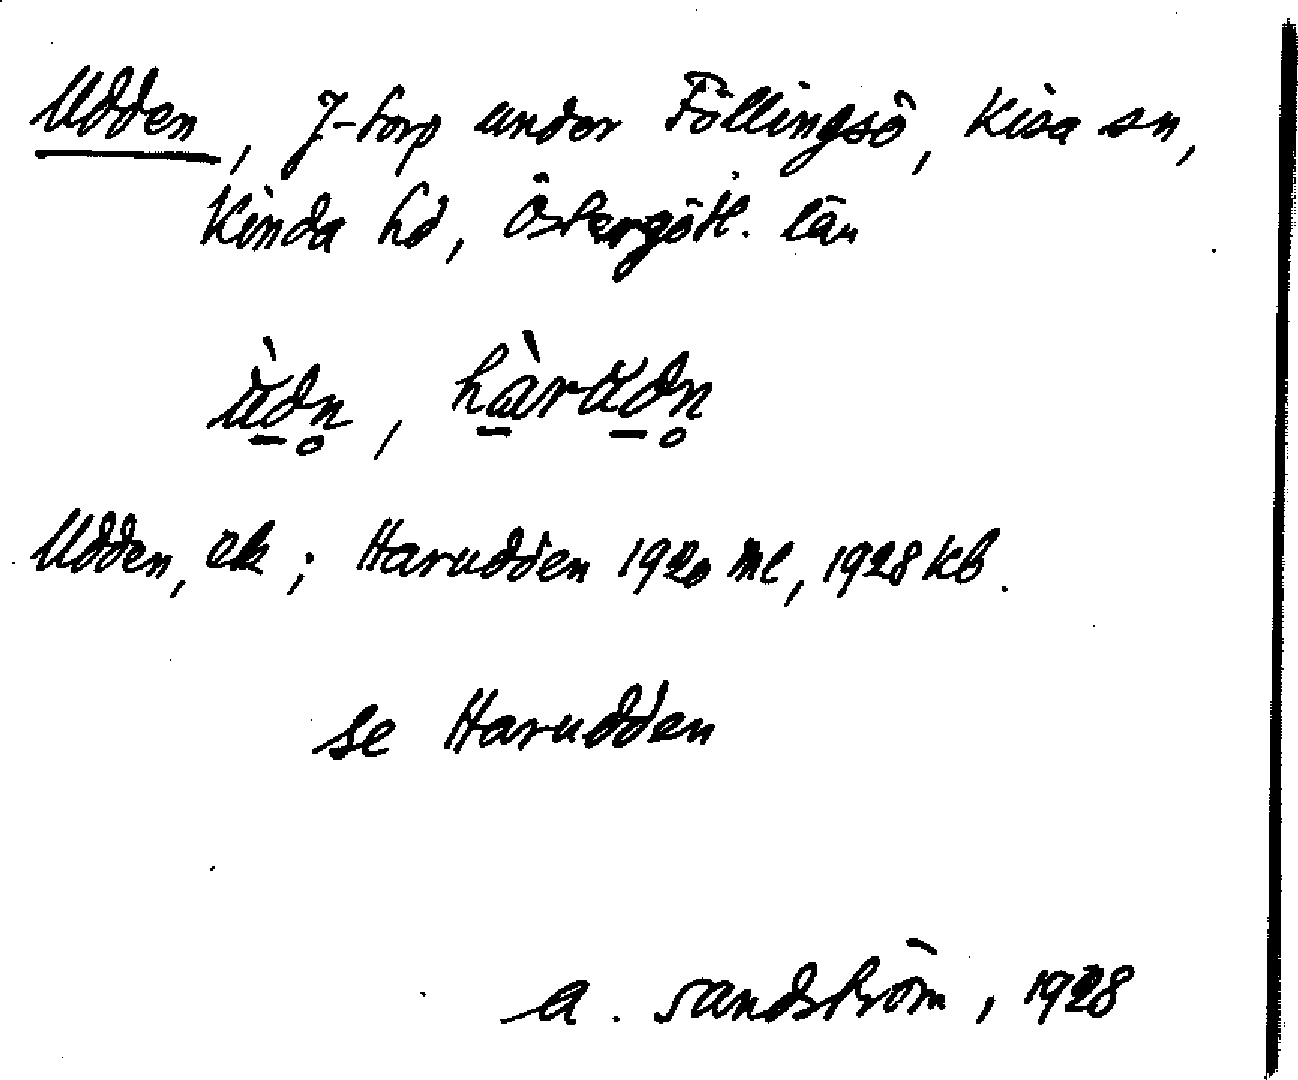 Udden, J-torp under Föllingsö, Kisa sn,
Kinda hd, Östergötl. län
ùd̠n̥, hà̠rud̠n̥
Udden, ek; Harudden 1920 Ml, 1928 kb.
se Harudden
A. Sandström, 1928